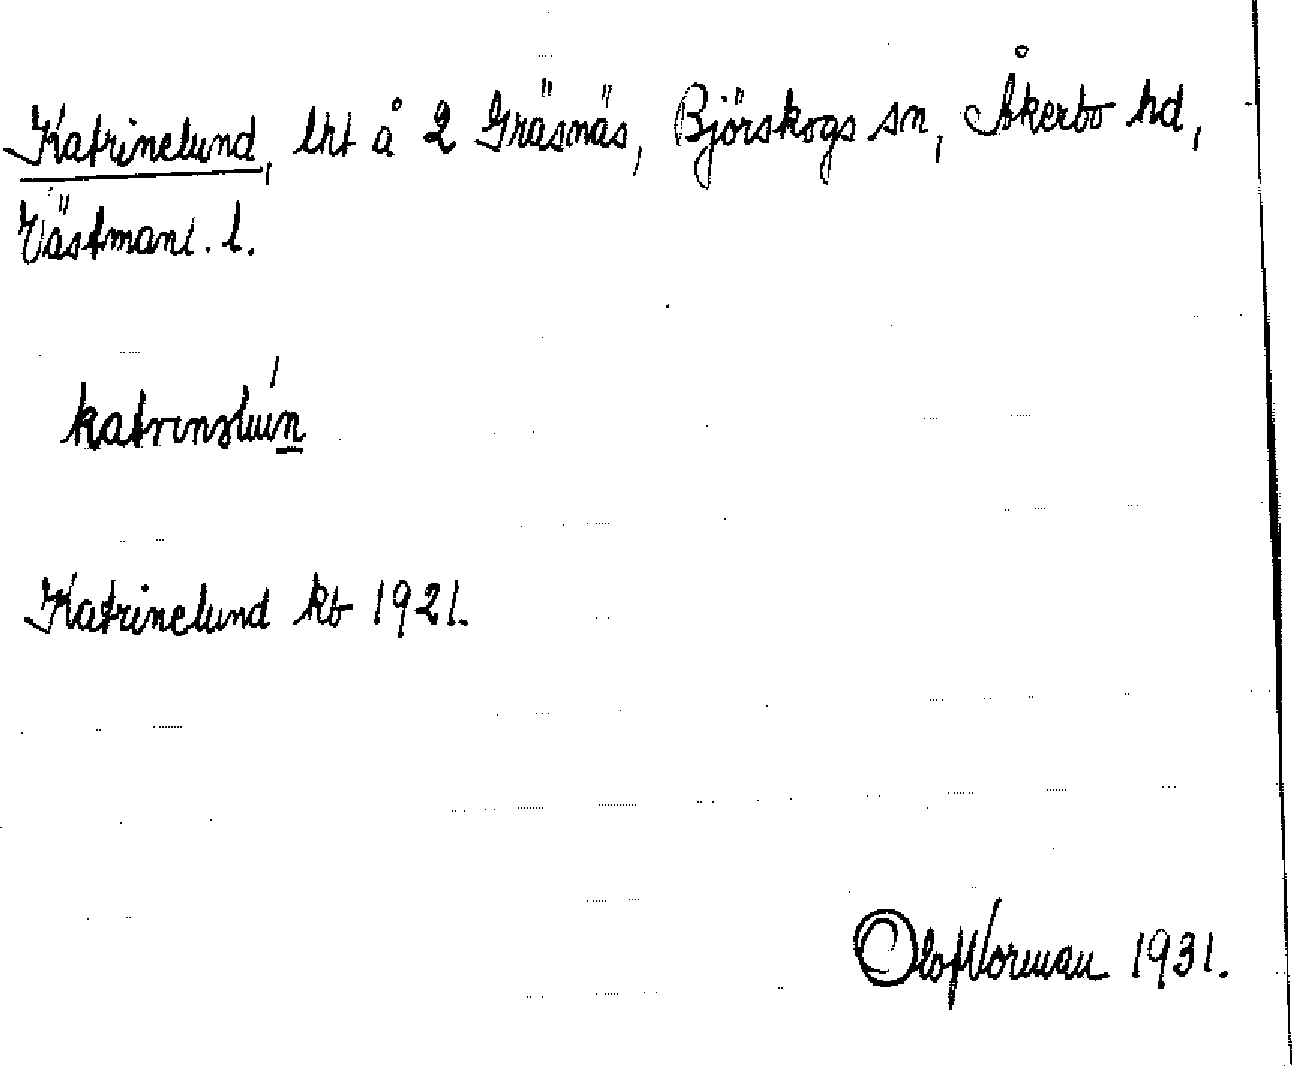 Katrinelund, lht å 2 Gräsnäs, Björskogs sn, Åkerbo hd,
Västmanl. l.
Katrinelund kb 1921.
Olof Norman 1931.